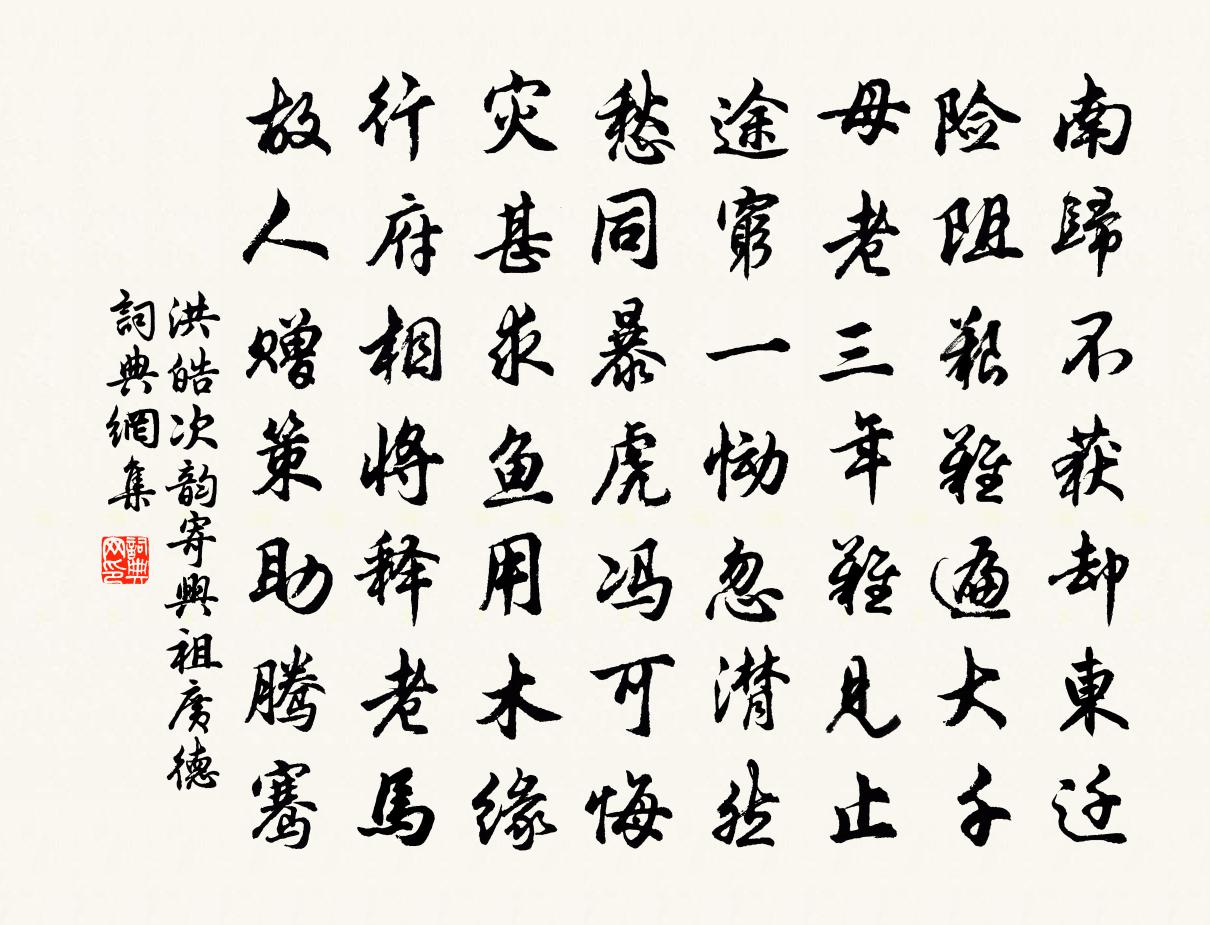 南歸不获却東迁
险阻艱難遍大千
母老三年難見止
途窮一恸忽潸然
愁同暴虎冯可悔
灾甚求鱼用木缘
行府相将释老馬
故人赠策助腾骞
洪皓次韵寄興祖廣德
詞典網集
詞典网印